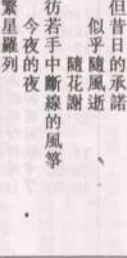 但昔日的承諾
似乎隨風逝
隨花謝
彷若手中斷線的風箏
今夜的夜
繁星羅列